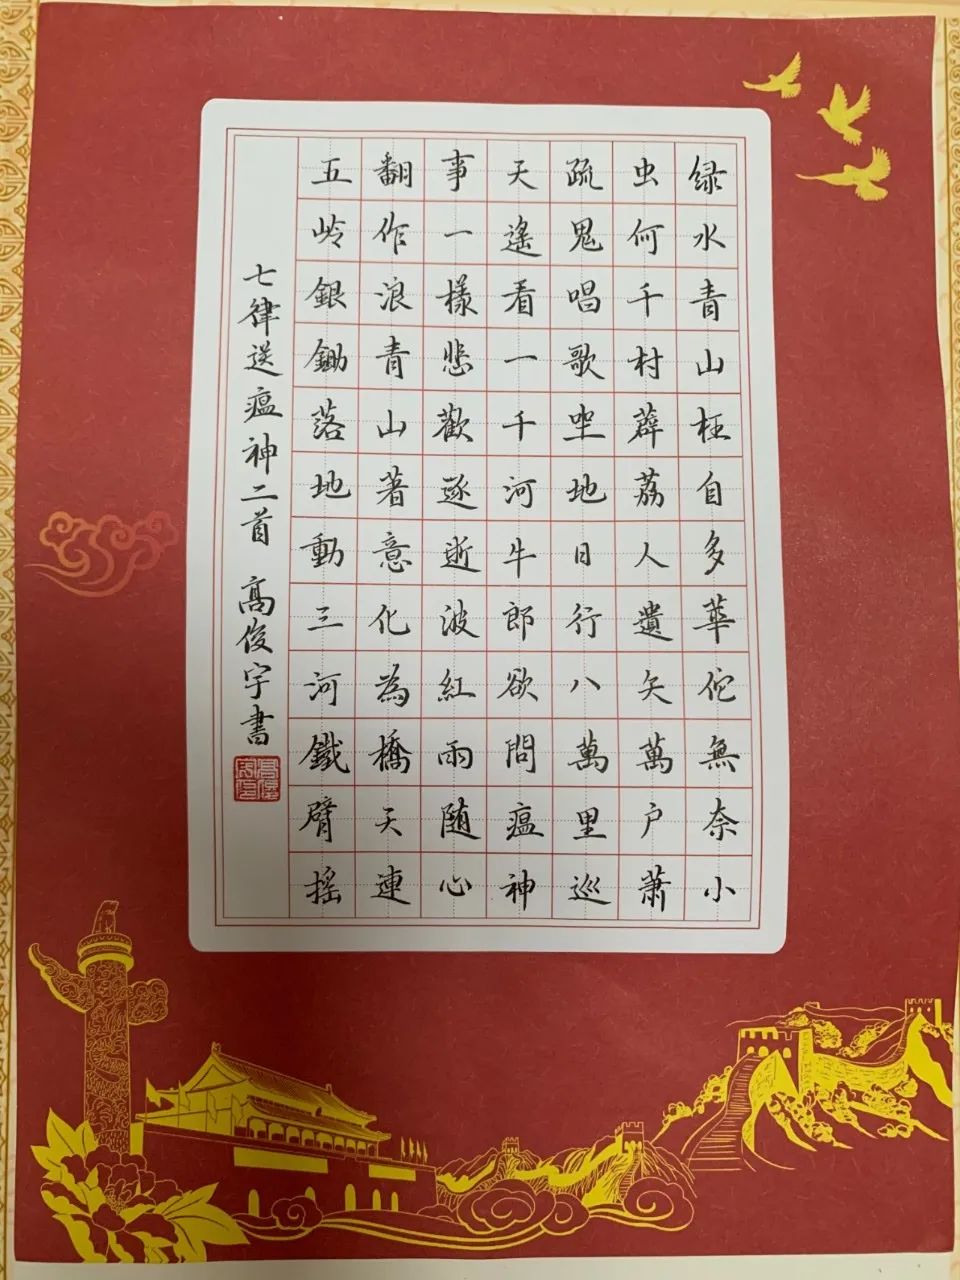 绿水青山枉自多華佗無奈小
虫何千村薜荔人遺矢萬户萧
疏鬼唱歌坐地日行八萬里巡
天遙看一千河牛郎欲問瘟神
事一樣悲歡逐逝波紅雨随心
翻作浪青山著意化為橋天連
五岭銀鋤落地動三河鐵臂摇
七律送瘟神二首 髙俊宇書